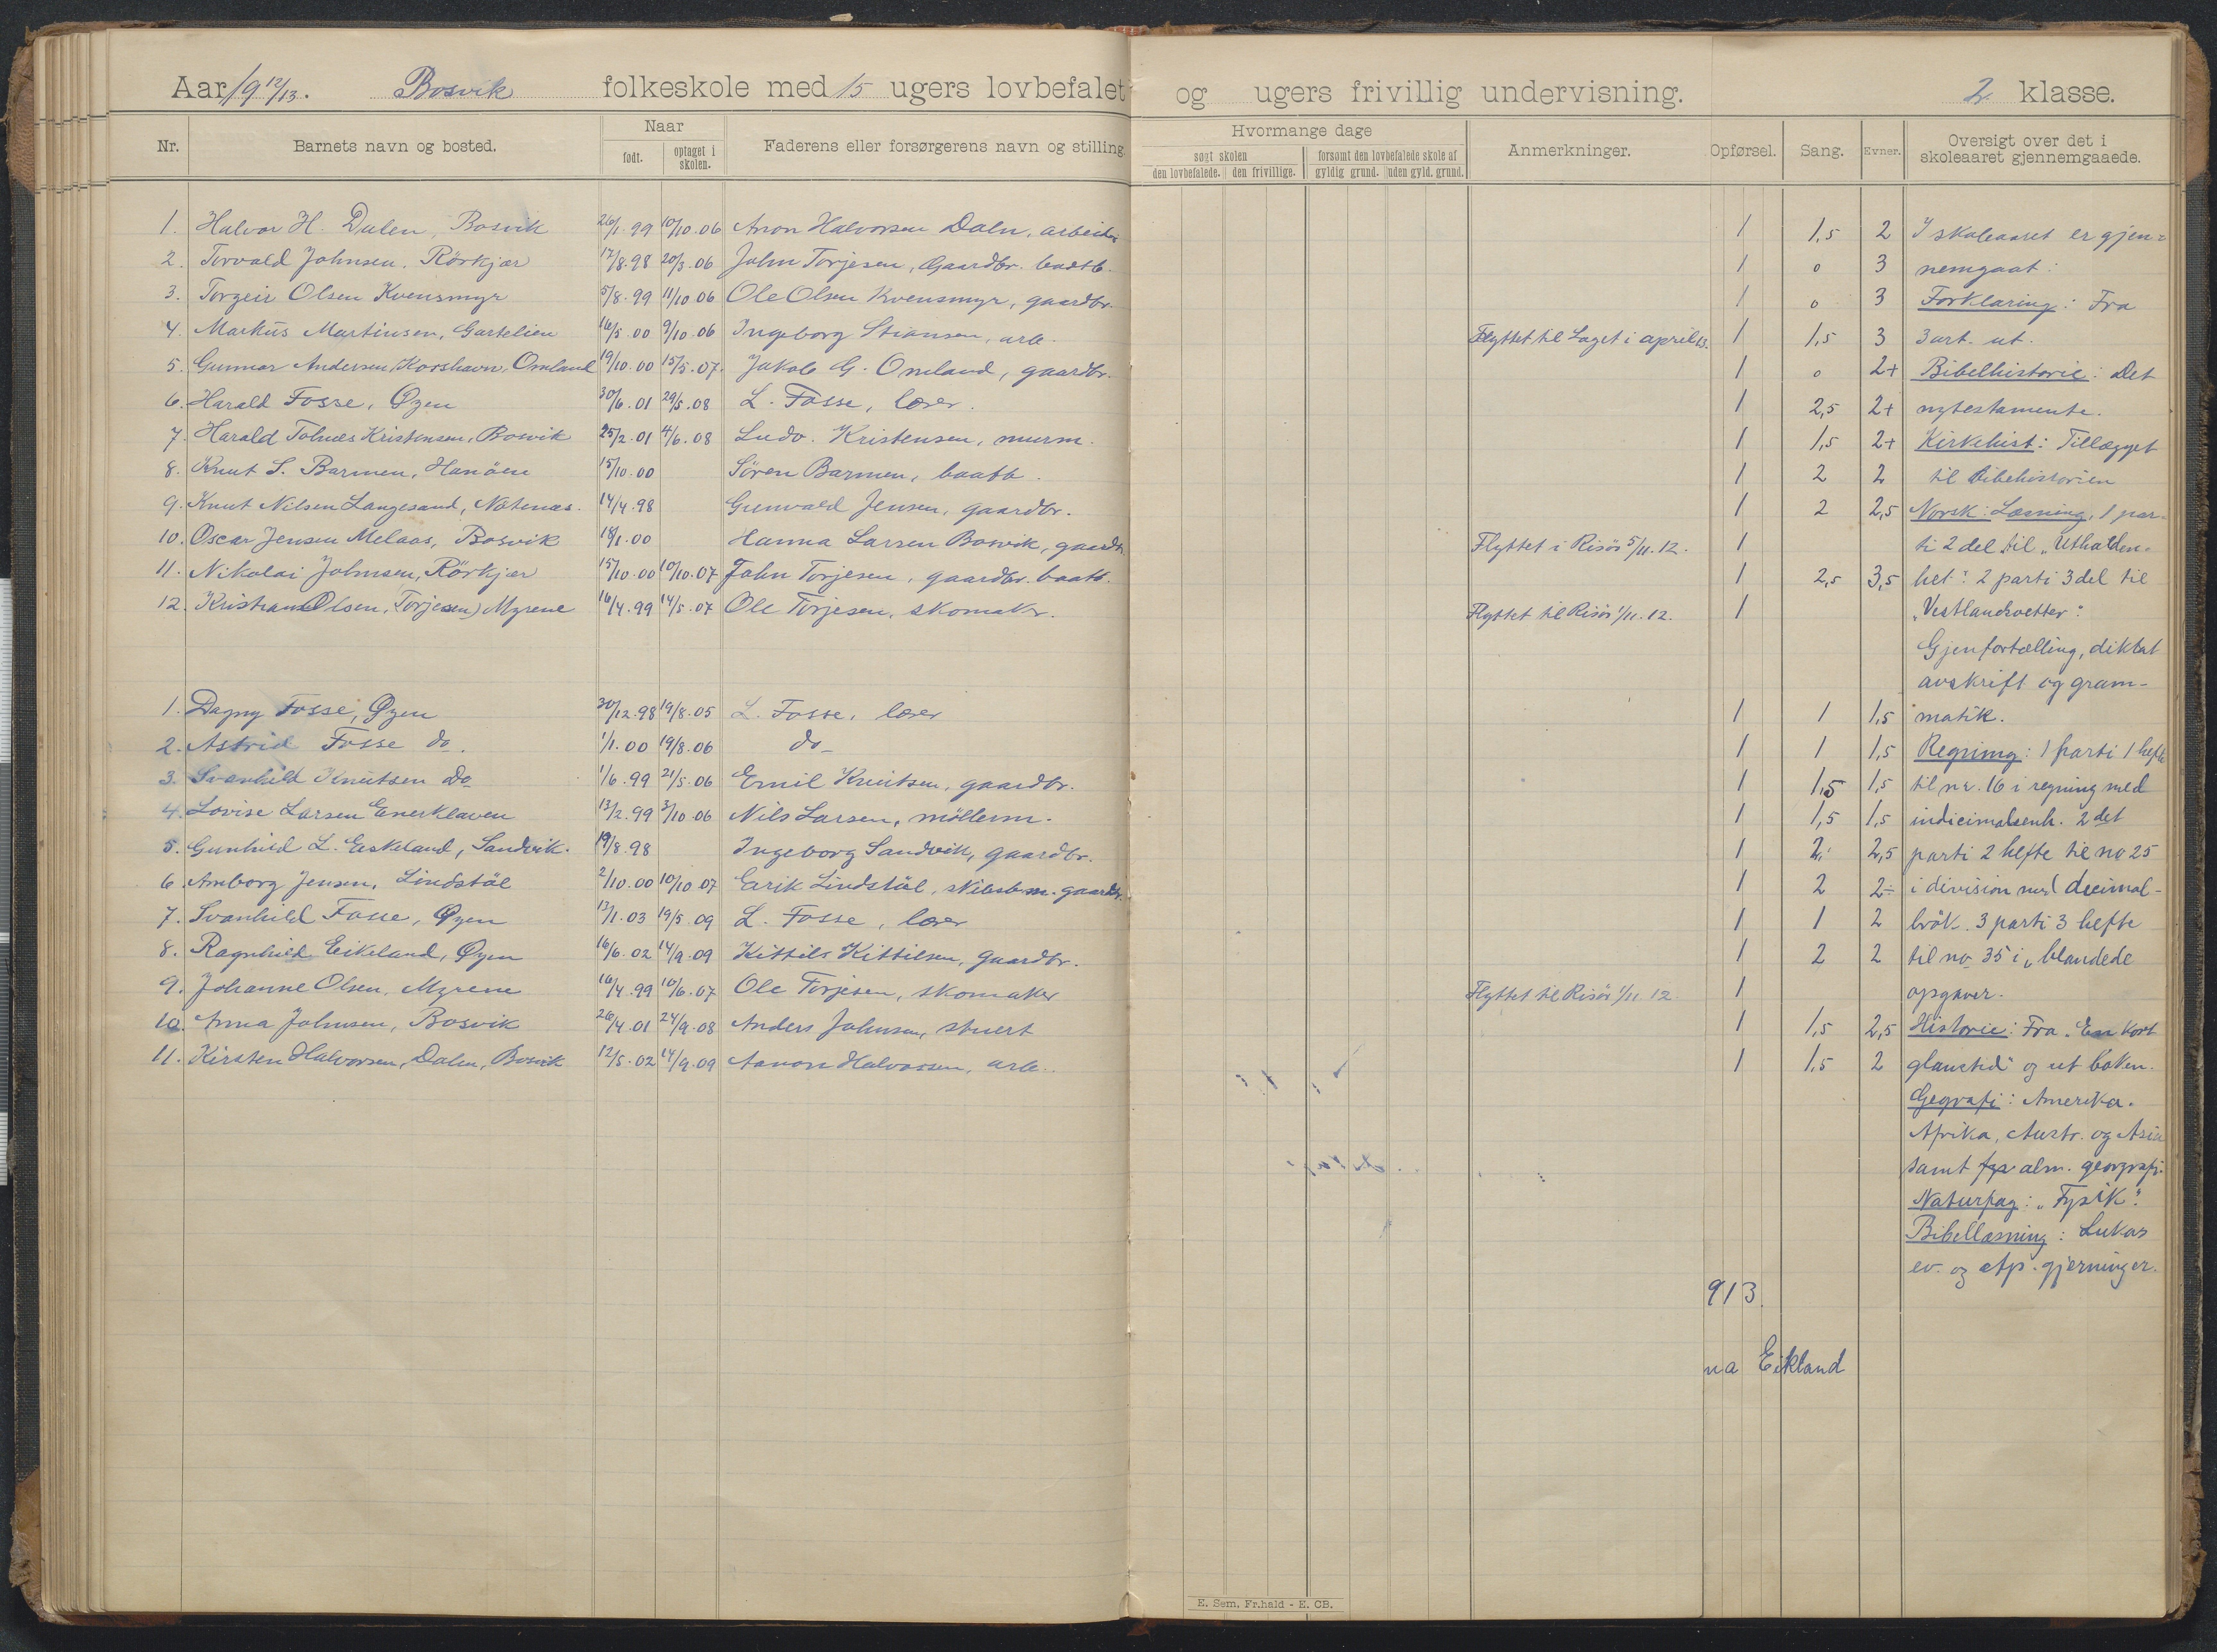 Aar 19 12/13. Bosvik folkeskole med 15 ugers lovbefalet og ugers frivillig undervisning. 2 klasse.
Nr. Barnets navn og bosted. Naar født. optaget i skolen. Faderens eller forsørgerens navn og stilling
Hvormange dage søgt skolen den lovbefalede. den frivillige. forsømt den lovbefalede skole af gyldig grund. uden gyld. grund. Anmerkninger. Opførsel. Sang. Evner. Oversigt over det i skoleaaret gjennemgaaede.
1. Halvor H. Dalen, Bosvik 26/1.99 10/10.06 Anon Halvorsen Daln, arbeider 1 1,5 2
2. Torvald Johnsen, Rörkjær 17/8.98 20/3.06 John Torjesen, Gaardbr. baatb. 1 0 3
3. Torgeir Olsen Kvensmyr 5/8.99 11/10 06 Ole Olsen Kvensmyr, gaardbr. 1 0 3
4. Markus Martinsen, Gartelien 16/5 00 9/10.06 Ingeborg Stiansen, arb. Flyttet til Laget i april 13. 1 1,5 3
5. Gunnar Andersen, Korshavn, Omland 19/10.00 15/5.07. Jakob G. Omland, gaardbr. 1 0 2+
6. Harald Fosse, Øyen 30/6.01 29/5.08 L. Fosse, lærer. 1 2,5 2+
7. Harald Tolnæs Kristensen, Bosvik 25/2.01 4/6.08 Ludv. Kristensen, murm. 1 1,5 2+
8. Knut S. Barmen, Hanöen 15/10.00 Sören Barmen, baatb. 1 2 2
9. Knut Nilsen Langesand, Natenæs. 14/4.98 Gunvald Jensen, gaardbr. 1 2 2,5
10. Oscar Jensen Melaas, Bosvik 18/1.00 Hanna Larsen Bosvik, gaardbr. Flyttet i Risör 5/11.12. 1
11. Nikolai Johnsen, Rörkjær 15/10.00 10/10.07 John Torjesen, gaardbr. baatb. 1 2,5 3,5
12. Kristian Olsen, (Torjesen) Myrene 16/4.99 14/5.07 Ole Torjesen, skomaker. Flyttet til Risör 1/11.12. 1
1. Dagny Fosse, Øyen 30/12.98 19/8.05 L. Fosse, lærer 1 1 1,5
2. Astrid Fosse do. 1/1.00 19/8.06 do 1 1 1,5
3. Svanhild Knutsen do 1/6.99 21/5.06 Emil Knutsen, gaardbr. 1 1,5 1,5
4. Lovise Larsen Enerklaven 13/2.99 3/10.06 Nils Larsen, möllerm. 1 1,5 1,5
5. Gunhild L. Eskeland, Sandvik. 19/8.98 Ingeborg Sandvik, gaardbr. 1 2 2,5
6. Amborg Jensen, Lindstöl 2/10.00 10/10 07 Eerik Lindstöl, skibsbm. gaardbr. 1 2 2÷
7. Svanhild Fosse, Øyen 13/1.03 19/5.09 L. Fosse, lærer 1 1 2
8. Ragnhild Eikeland, Øyen 16/6.02 14/9.09 Kittils Kittilsen, gaardbr. 1 2 2
9. Johanne Olsen, Myrene 16/4.99 10/6.07 Ole Torjesen, skomaker Flyttet til Risör 1/11 12. 1
10. Anna Johnsen, Bosvik 26/4.01 24/9.08 Anders Johnsen, stuert 1 1,5 2,5
11. Kirsten Halvorsen, Dalen, Bosvik 12/5.02 14/9.09 Aanon Halvorsen, arb. 1 1,5 2
I skoleaaret er gjen=
nemgaat:
Forklaring: Fra
3 art. ut.
Bibelhistorie: Det
nytestamente.
Kirkehist: Tillægget
til Bibehistorien
Norsk: Læsning, 1 par-
ti 2 del til „Utholden-
het". 2 parti 3 del til
„Vestlandsvetter".
Gjenfortælling, diktat
avskrift og gram-
matik.
Regning: 1 parti 1 hefte
til nr. 16 i regning med
2 det
parti 2 hefte til no 25
i division med decimal-
brök. 3 parti 3 hefte
til no 35 i „blandede
opgaver.
Historie: Fra „En kort
glanstid" og ut boken.
Gegrafi: Amerika.
Afrika, Austr. og Asia
samt alm. geografi.
Naturfag: „Fysik".
Bibellæsning: Lukas
ev. og Ap. gjerninger.
913.
na Eikland
E. Sem, Fr.hald - E. CB.